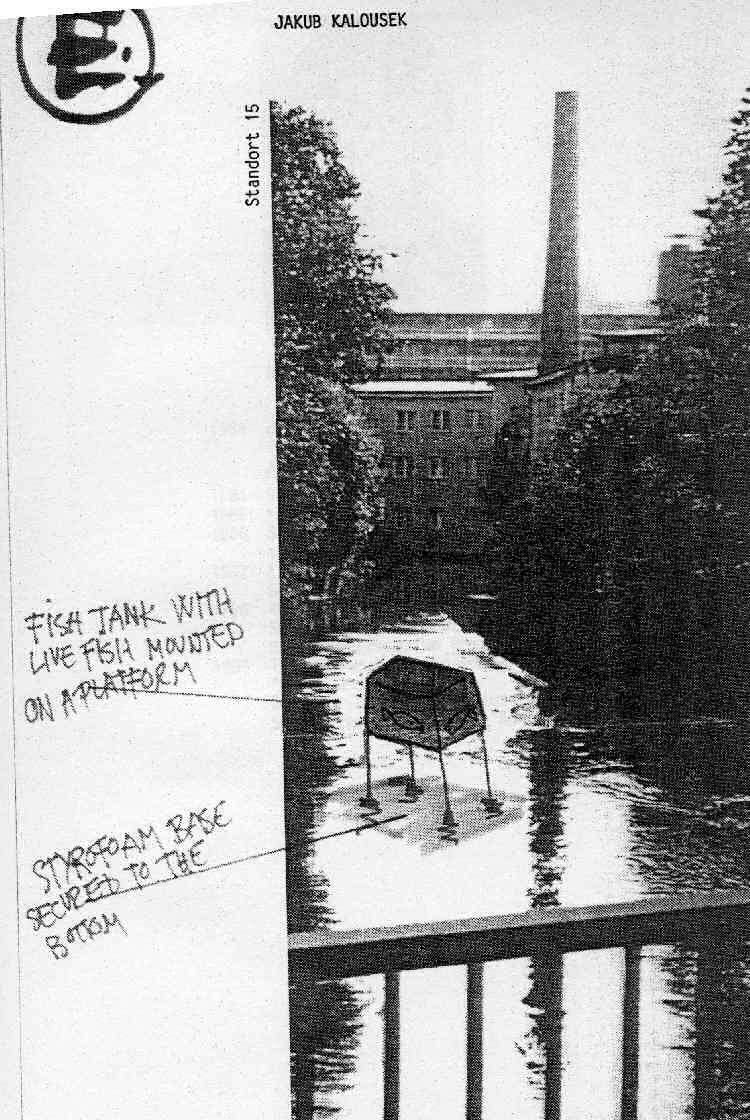 JAKUB KALOUSEK
Standort 15
FISH TANK WITH
LIVE FISH MOUNTED
ON A PLATFORM
STYROFOAM BASE
SECURED TO THE
BOTTOM